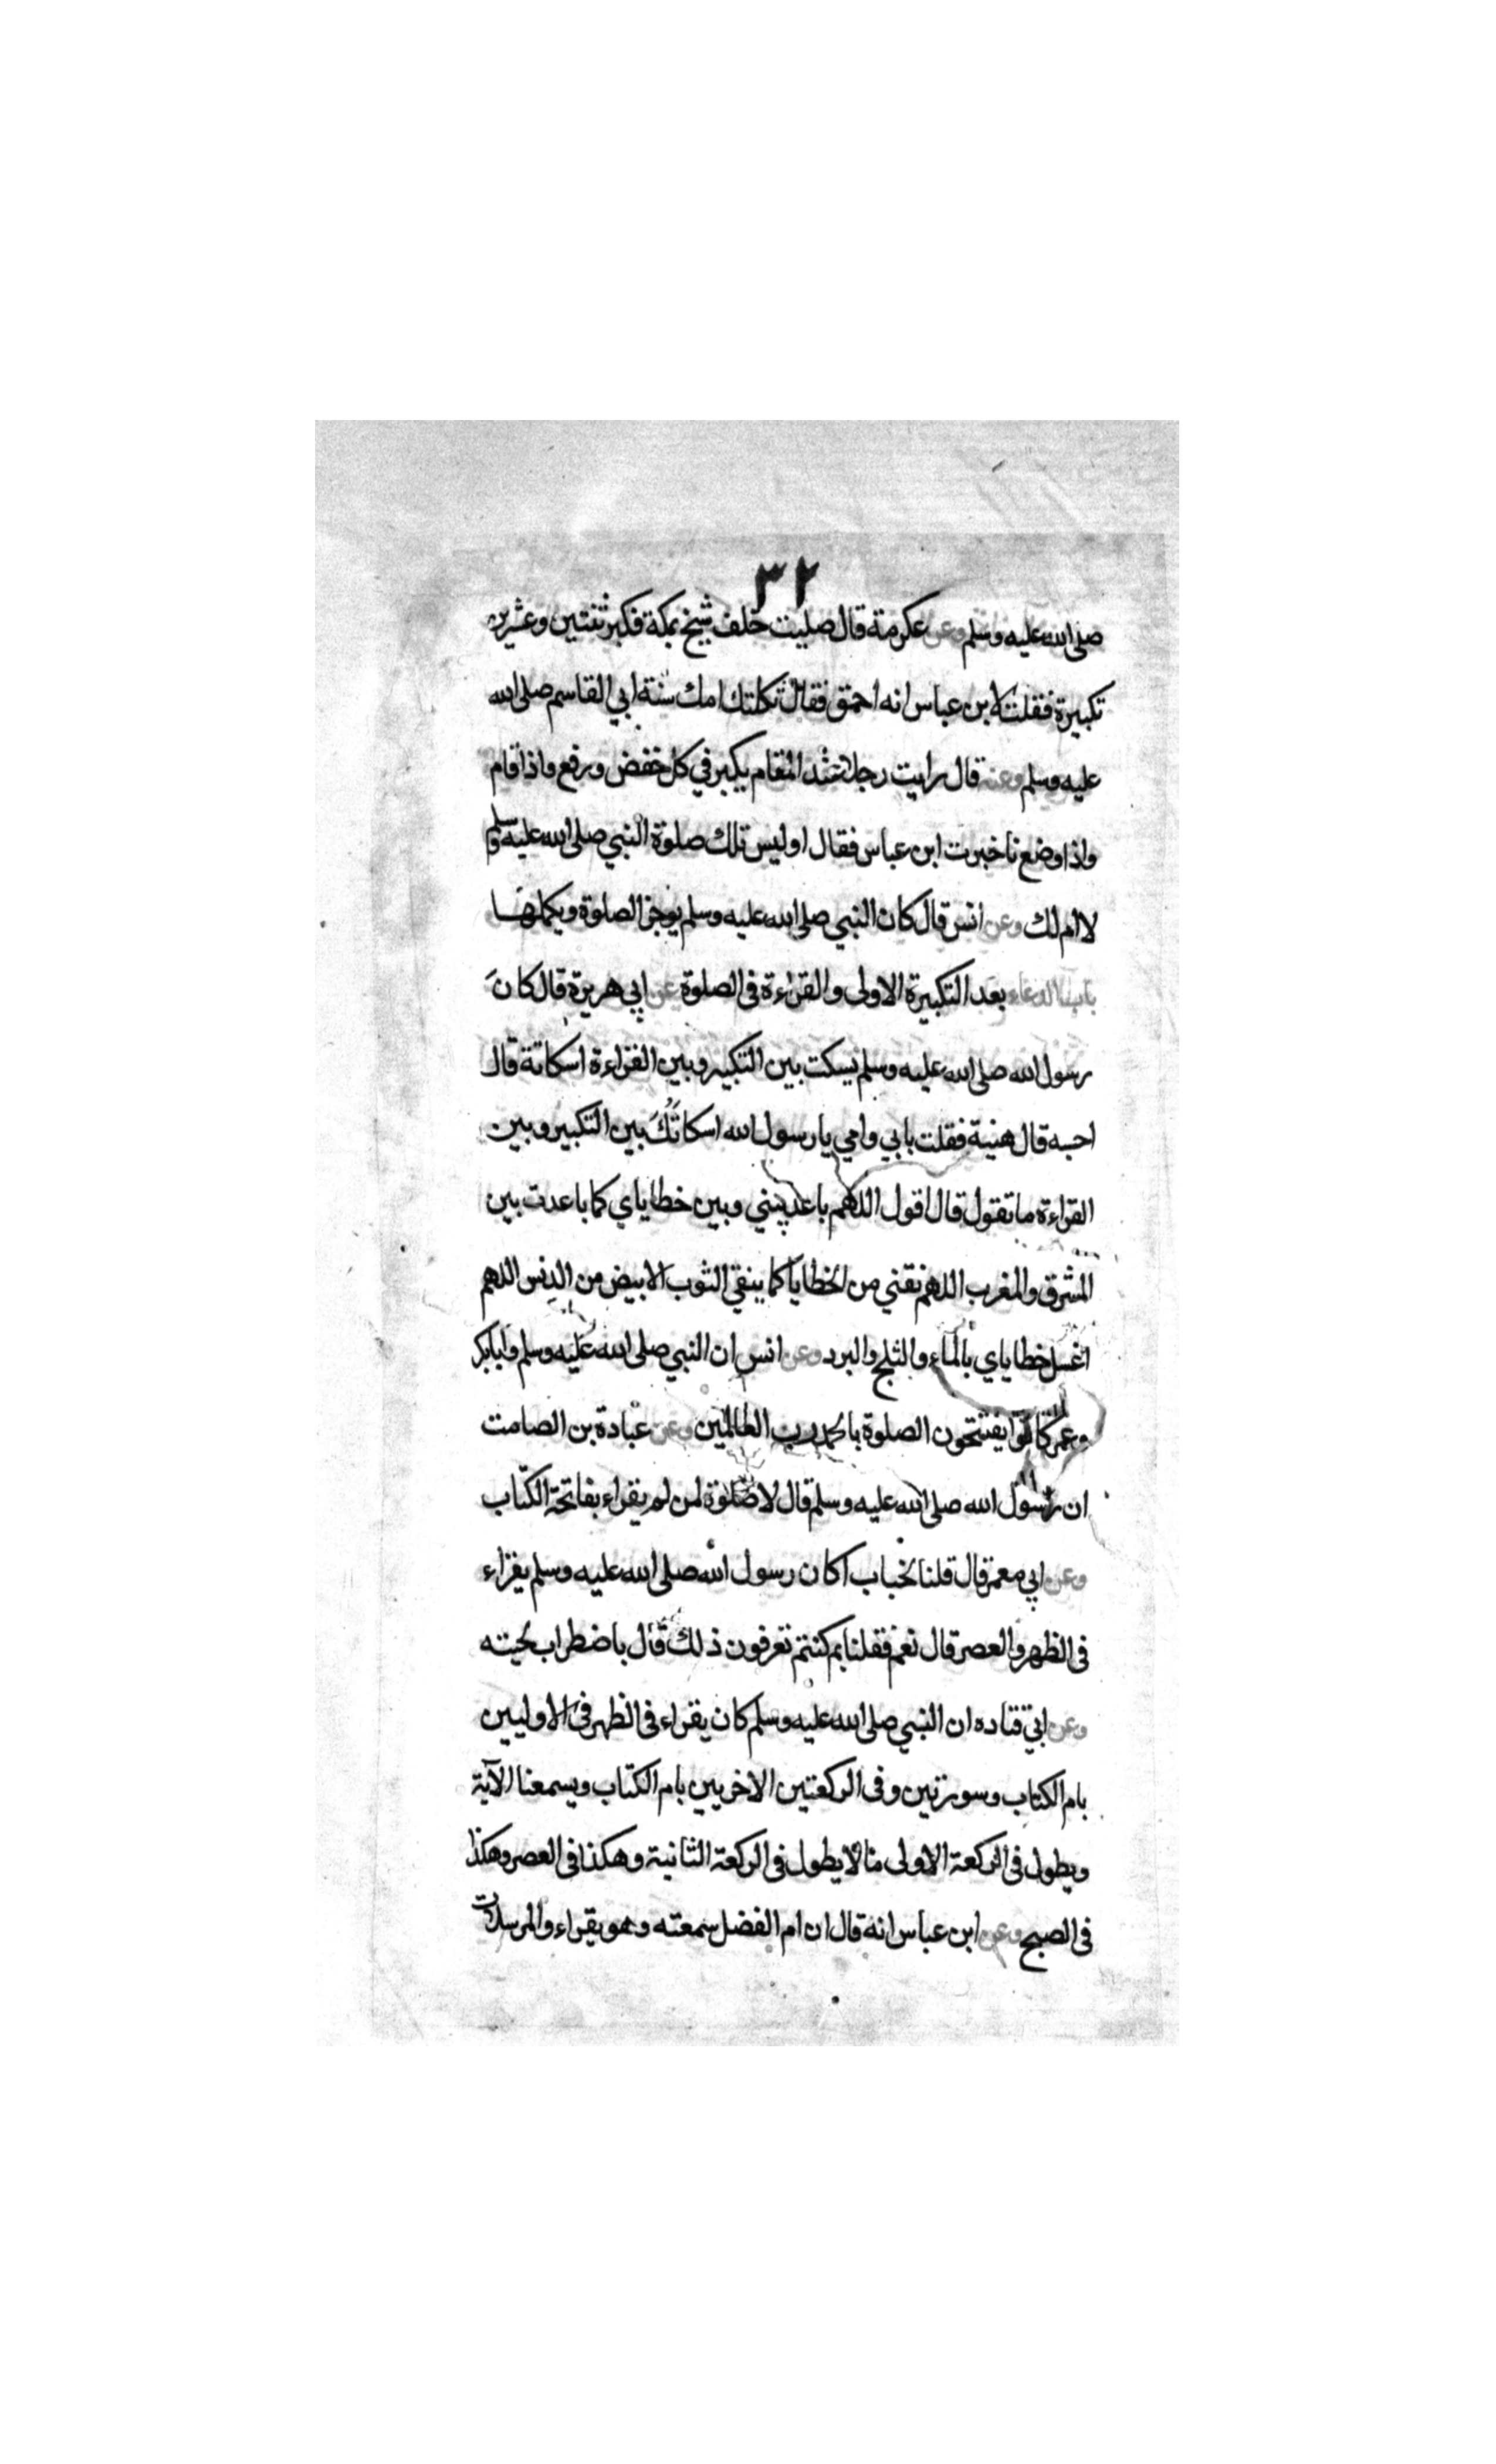 ٣٢
صلى الله عليه وسلم وعن عكرمة قال صليت خلف شيخ بمكة فكبر ثنتين وعشرين
تكبيرة فقلت لابن عباس انه احمق فقال ثكلتك امك سنة ابي القاسم صلى الله
عليه وسلم وعنه قال رايت رجلا عند المقام يكبر في كل خفض ورفع واذا قام
واذا وضع فاخبرت ابن عباس فقال اوليس تلك صلوة النبي صلى الله عليه وسلم
لا ام لك وعن انس قال كان النبي صلى الله عليه وسلم يوجز الصلوة ويكملها
باب الدعاء بعد التكبيرة الاولى والقراءة فى الصلوة عن ابي هريرة قال كانَ
رسول الله صلى الله عليه وسلم يسكت بين التكبير وبين القراءة اسكاتة قال
احسبه قال هنية فقلت بابي وامي يا رسول الله اسكاتُكَ بين التكبير وبين
القراءة ما تقول قال اقول اللهم باعد بيني وبين خطاياي كما باعدت بين
المشرق والمغرب اللهم نقني من الخطايا كما ينقي الثوب الابيض من الدنس اللهم
اغسل خطاياي بالماء والثلج والبرد وعن انس ان النبي صلى الله عليه وسلم وابابكر
وعمر كانوا يفتتحون الصلوة بالحمد رب العالمين وعن عبادة بن الصامت
ان رسول الله صلى الله عليه وسلم قال لا صلوة لمن لم يقراء بفاتحة الكتاب
وعن ابي معمر قال قلنا لخباب اكان رسول الله صلى الله عليه وسلم يقراء
فى الظهر والعصر قال نعم فقلنا بم كنتم تعرفون ذلك قال باضطراب لحيته
وعن ابي قتاده ان النبي صلى الله عليه وسلم كان يقراء فى الظهر فى الاوليين
بام الكتاب وسورتين وفى الركعتين الاخريين بام الكتاب ويسمعنا الآية
ويطول فى الركعة الاولى مالا يطول فى الركعة الثانية وهكذا فى العصر وهكذا
فى الصبح وعن ابن عباس انه قال ان ام الفضل سمعته وهو يقراء والمرسلات